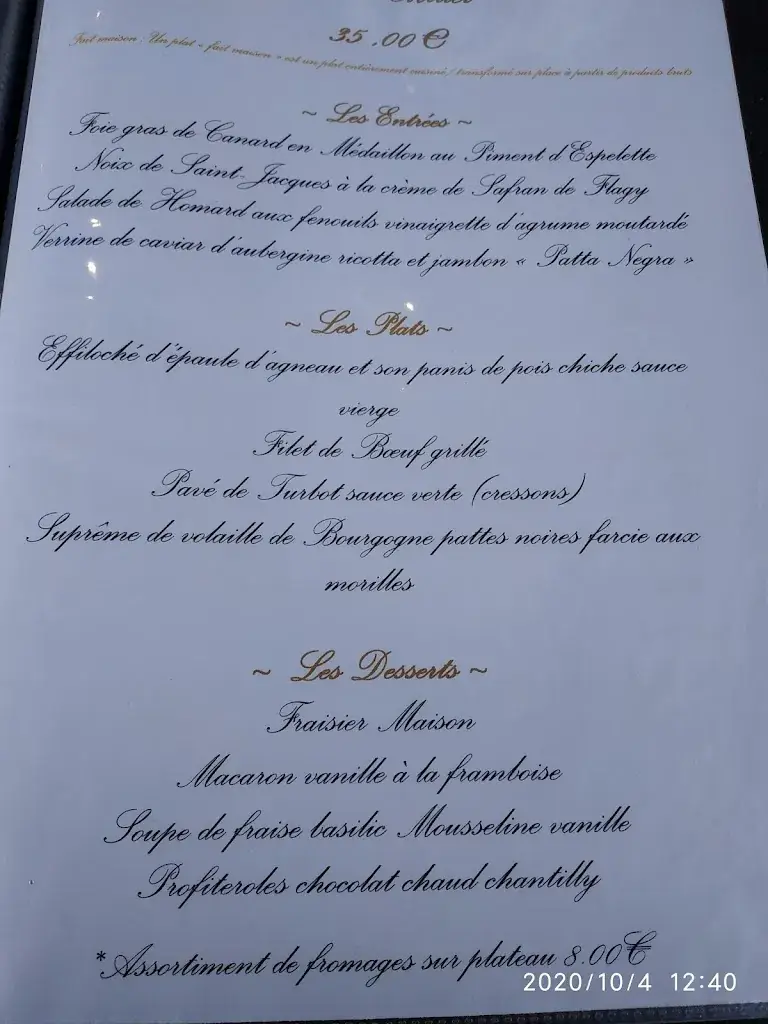 35.00€
Fait maison : Un plat « fait maison » est un plat entièrement cuisiné / transformé sur place à partir de produits bruts
~ Les Entrées ~
Foie gras de Canard en Médaillon au Piment d'Espelette
Noix de Saint-Jacques à la crème de Safran de Flagy
Salade de Homard aux fenouils vinaigrette d'agrume moutardé
Verrine de caviar d'aubergine ricotta et jambon « Patta Negra »
~ Les Plats ~
Effiloché d'épaule d'agneau et son panis de pois chiche sauce
vierge
Filet de Bœuf grillé
Pavé de Turbot sauce verte (cressons)
Suprême de volaille de Bourgogne pattes noires farcie aux
morilles
~ Les Desserts ~
Fraisier Maison
Macaron vanille à la framboise
Soupe de fraise basilic Mousseline vanille
Profiteroles chocolat chaud chantilly
*Assortiment de fromages sur plateau 8.00€
2020/10/4 12:40